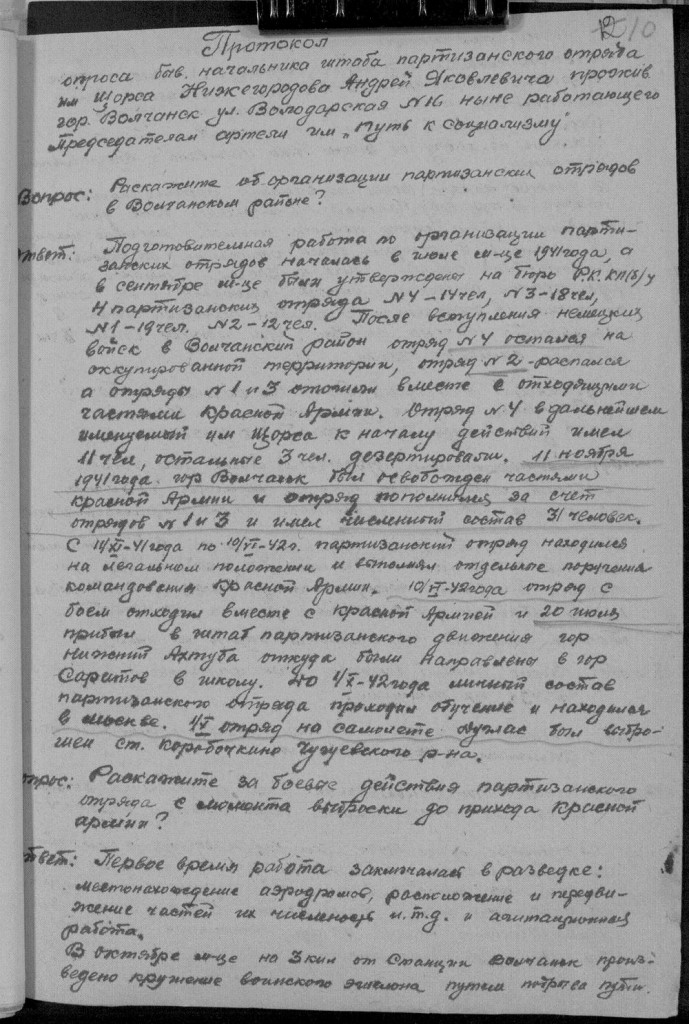 10
Протокол
опроса быв. начальника штаба партизанского отряда
им Щорса Нижегородова Андрей Яковлевича прожив.
гор. Волчанск ул. Володарская №16 ныне работающего
Председателем артели им „Путь к социализму"
Вопрос: Раскажите об организации партизанских отрядов
в Волчанском районе?
Ответ: Подготовительная работа по организации парти-
занских отрядов началась в июле м-це 1941года, а
в сентябре м-це были утверждены на бюро Р.К. КП(б)У
4 партизанских отряда №4-14чел, №3-18чел,
№1-19чел. №2-12чел. После вступления немецких
войск в Волчанский район отряд №4 остался на
оккупированной территории, отряд №2-распался
а отряды №1 и 3 отошли вместе с отходящими
частями Красной Армии. Отряд №4 в дальнейшем
именуемый им Щорса к началу действий имел
11 чел, остальные 3 чел. дезертировали. 11 ноября
1941года гор Волчанск был освобожден частями
красной Армии и отряд пополнился за счет
отрядов №1 и 3 и имел численный состав 31 человек.
С 11/XI-41года по 10/VI-42г. партизанский отряд находился
на легальном положении и выполнял отдельные поручения
командования Красной Армии. 10/VI-42года отряд с
боем отходил вместе с красной Армией и 20 июля
прибыл в штаб партизанского движения гор
нижний Ахтуба откуда были направлены в гор
Саратов в школу. До 1/X-42года личный состав
партизанского отряда проходил обучение и находился
в москве. отряд на самолете Дуглас был выбро-
шен ст. Коробочкино Чугуевского р-на.
Вопрос: Раскажите за боевые действия партизанского
отряда с момонта выброски до прихода Красной
армии?
Ответ: Первое время работа заключалась в разведке:
местонахождение аэродромов, расположение и передви-
жение частей их численность и.т.д. и агитационная
работа.
В октябре м-це на 3 км от Станции Волчанск произ-
ведено крушение воинского эшелона путем подрыва пути.